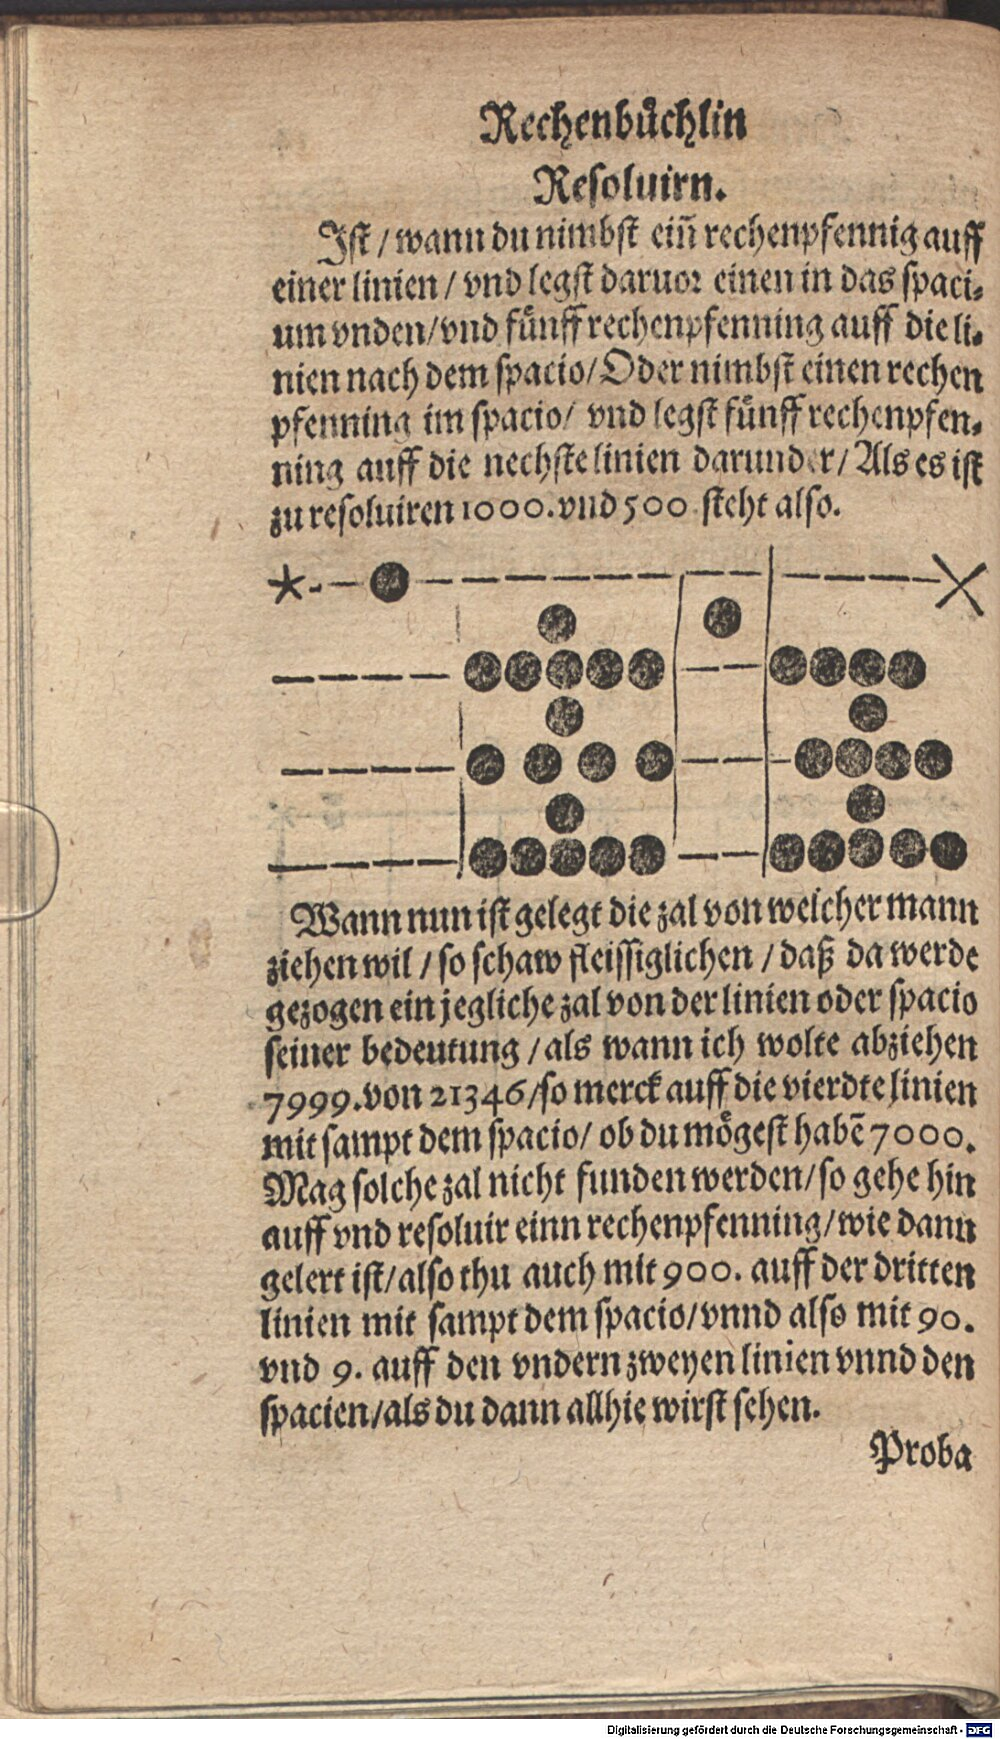 Rechenbůchlin
Resoluirn.
Ist / wann du nimbst eiñ rechenpfennig auff
einer linien / vnd legst daruor einen in das spaci⸗
um vnden/vnd fůnff rechenpfenning auff die li⸗
nien nach dem spacio/Oder nimbst einen rechen
pfenning im spacio/ vnd legst fůnff rechenpfen⸗
ning auff die nechste linien darunder/ Als es ist
zu resoluiren 1000. vnd 500 steht also.
Wann nun ist gelegt die zal von welcher mann
ziehen wil / so schaw fleissiglichen / daß da werde
gezogen ein jegliche zal von der linien oder spacio
seiner bedeutung / als wann ich wolte abziehen
7999. von 21346/so merck auff die vierdte linien
mit sampt dem spacio/ ob du mögest habē 7000.
Mag solche zal nicht funden werden/so gehe hin
auff vnd resoluir einn rechenpfenning/wie dann
gelert ist/also thu auch mit 900. auff der dritten
linien mit sampt dem spacio/vnnd also mit 90.
vnd 9. auff den vndern zweyen linien vnnd den
spacien/als du dann allhie wirst sehen.
Proba
Digitalisierung gefördert durch die Deutsche Forschungsgemeinschaft - DFG